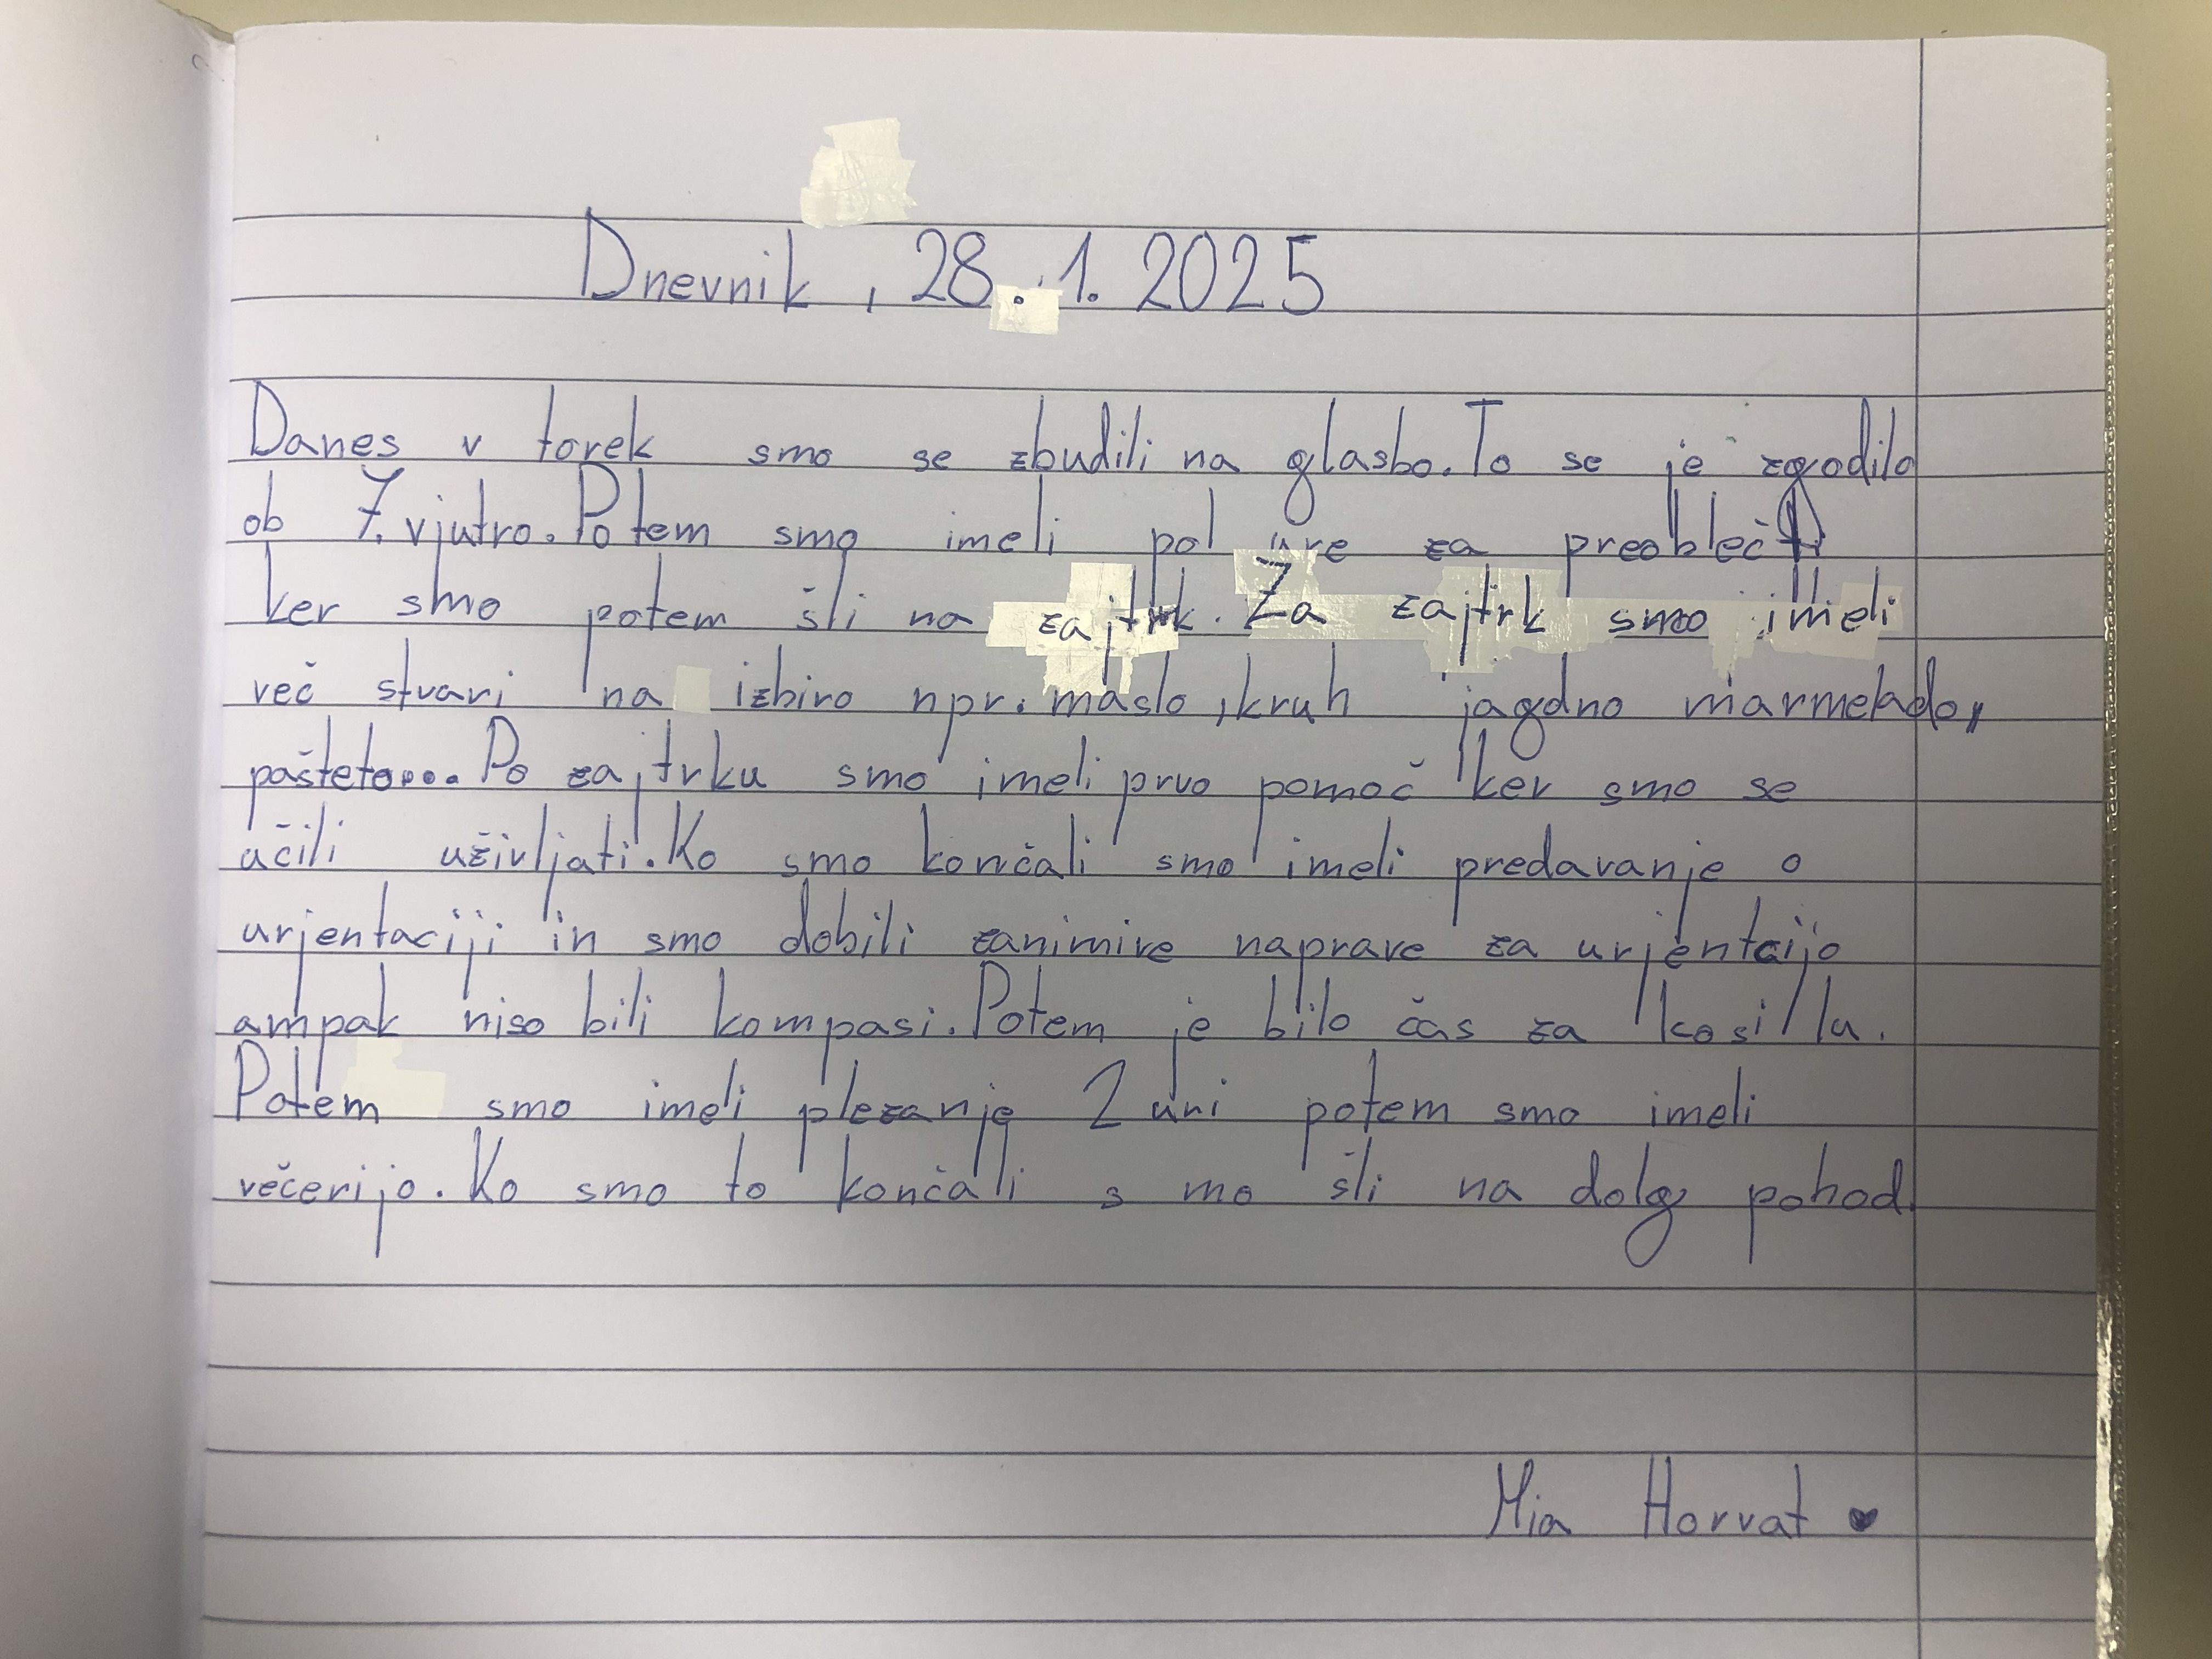 Dnevnik, 28.1. 2025
Danes v torek smo se zbudili na glasbo. To se je zgodilo
ob 7. vjutro. Potem smo imeli pol ure za preobleč
ker smo potem šli na zajtrk. Za zajtrk smo imeli
več stvari na izbiro npr. maslo, kruh jagdno marmelado,
pašteto... Po zajtrku smo imeli prvo pomoč ker smo se
učili uživljati. Ko smo končali smo imeli predavanje o
urjentaciji in smo dobili zanimive naprave za urjentcijo
ampak niso bili kompasi. Potem je bilo čas za kosilu.
Potem smo imeli plezanje 2 uni potem smo imeli
večerijo. Ko smo to končali s mo šli na dolg pohod.
Mia Horvat ♥